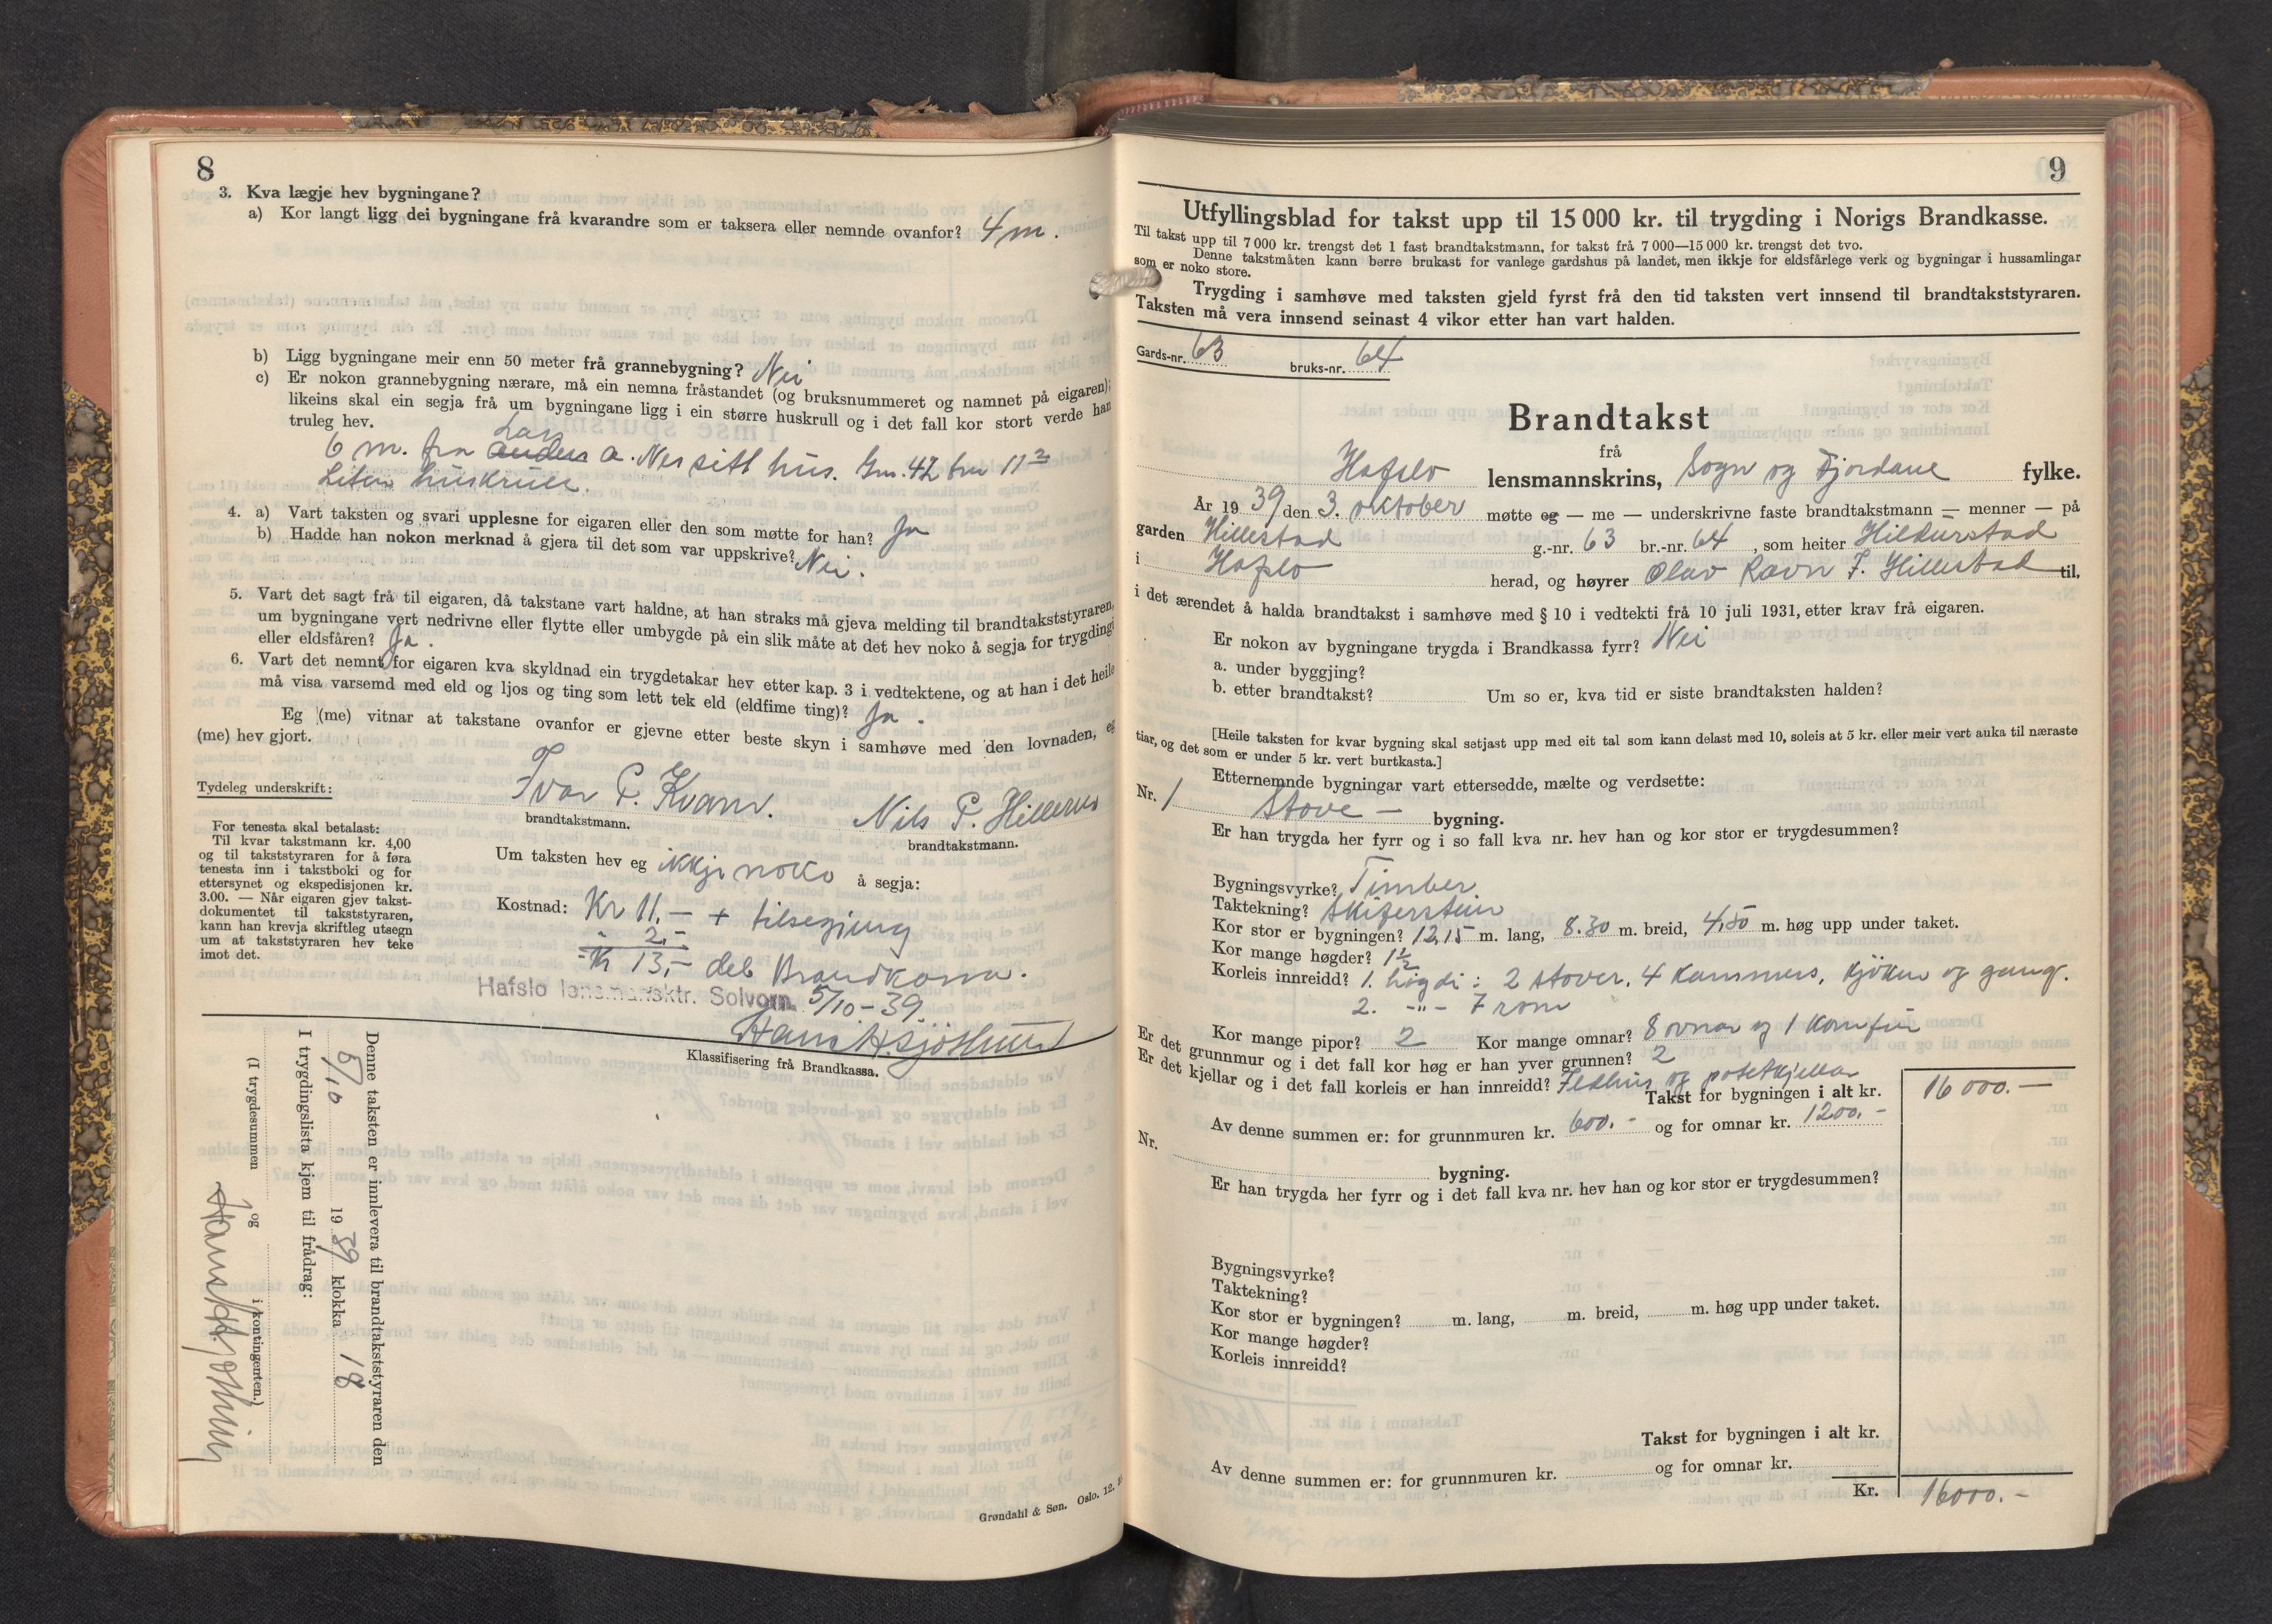 8
3. Kva lægje hev bygningane?
a) Kor langt ligg dei bygningane frå kvarandre som er taksera eller nemnde ovanfor? 4 m.
b) Ligg bygningane meir enn 50 meter frå grannebygning? Nei
c) Er nokon grannebygning nærare, må ein nemna fråstandet (og bruksnummeret og namnet på eigaren);
likeins skal ein segja frå um bygningane ligg i ein større huskrull og i det fall kor stort verde han
truleg hev.
Lars
6 m. fra Anders A. Nes sitt hus. Gnr. 42 bnr 11
Liten huskrull.
4. a) Vart taksten og svari upplesne for eigaren eller den som møtte for han? Ja
b) Hadde han nokon merknad å gjera til det som var uppskrive? Nei.
5. Vart det sagt frå til eigaren, då takstane vart haldne, at han straks må gjeva melding til brandtakststyraren,
um bygningane vert nedrivne eller flytte eller umbygde på ein slik måte at det hev noko å segja for trygdingi
eller eldsfåren? Ja.
6. Vart det nemnt for eigaren kva skyldnad ein trygdetakar hev etter kap. 3 i vedtektene, og at han i det heile
må visa varsemd med eld og ljos og ting som lett tek eld (eldfime ting)? Ja.
Eg (me) vitnar at takstane ovanfor er gjevne etter beste skyn i samhøve med den lovnaden, eg
(me) hev gjort.
Tydeleg underskrift: Ivar P. Kvam. Nils P. Hillestad
brandtakstmann. brandtakstmann.
For tenesta skal betalast:
Til kvar takstmann kr. 4,00
og til takststyraren for å føra
tenesta inn i takstboki og for
ettersynet og ekspedisjonen kr.
3.00. — Når eigaren gjev takst-
dokumentet til takststyraren,
kann han krevja skriftleg utsegn
um at takststyraren hev teke
imot det.
Um taksten hev eg ikkje noko å segja:
Kostnad: Kr 11,- + tilsegjing
" 2,-
= Kr 13,- deb Brandkassa.
Hafslo lensmansktr. Solvorn. 5/10-39.
Klassifisering frå Brandkassa.
Denne taksten er innlevera til brandtakststyraren den
5/10 1939 klokka 18
I trygdingslista kjem til frådrag:
(I trygdesummen og i kontingenten.)
Grøndahl & Søn. Oslo. 12.
9
Utfyllingsblad for takst upp til 15 000 kr. til trygding i Norigs Brandkasse.
Til takst upp til 7 000 kr. trengst det 1 fast brandtakstmann, for takst frå 7 000—15 000 kr. trengst det tvo.
Denne takstmåten kann berre brukast for vanlege gardshus på landet, men ikkje for eldsfårlege verk og bygningar i hussamlingar
som er noko store.
Trygding i samhøve med taksten gjeld fyrst frå den tid taksten vert innsend til brandtakststyraren.
Taksten må vera innsend seinast 4 vikor etter han vart halden.
Gards-nr. 63 bruks-nr. 64
Brandtakst
frå
Hafslo lensmannskrins, Sogn og Fjordane fylke.
År 1939 den 3. oktober møtte eg — me — underskrivne faste brandtakstmann — menner — på
garden Hillestad g.-nr. 63 br.-nr. 64, som heiter Hildurstad
i Hafslo herad, og høyrer Olav Ravn F. Hillestad til,
i det ærendet å halda brandtakst i samhøve med § 10 i vedtekti frå 10 juli 1931, etter krav frå eigaren.
Er nokon av bygningane trygda i Brandkassa fyrr? Nei
a. under byggjing?
b. etter brandtakst? Um so er, kva tid er siste brandtaksten halden?
[Heile taksten for kvar bygning skal setjast upp med eit tal som kann delast med 10, soleis at 5 kr. eller meir vert auka til næraste
tiar, og det som er under 5 kr. vert burtkasta.]
Etternemnde bygningar vart ettersedde, mælte og verdsette:
Nr. 1 Stove — bygning.
Er han trygda her fyrr og i so fall kva nr. hev han og kor stor er trygdesummen?
Bygningsvyrke? Timber
Taktekning? Skiferstein
Kor stor er bygningen? 12,15 m. lang, 8.30 m. breid, 4,80 m. høg upp under taket.
Kor mange høgder? 1 1/2
Korleis innreidd? 1. høgdi: 2 stover, 4 kammers, kjøken og gang.
2. -"- 7 rom
Kor mange pipor? 2 Kor mange omnar? 8 ovnar og 1 komfur
Er det grunnmur og i det fall kor høg er han yver grunnen? 2
Er det kjellar og i det fall korleis er han innreidd? Eldhus og potetkjellar
Takst for bygningen i alt kr. 16 000.—
Av denne summen er: for grunnmuren kr. 600.- og for omnar kr. 1200.-
Nr. bygning.
Er han trygda her fyrr og i det fall kva nr. hev han og kor stor er trygdesummen?
Bygningsvyrke?
Taktekning?
Kor stor er bygningen? m. lang, m. breid, m. høg upp under taket.
Kor mange høgder?
Korleis innreidd?
Takst for bygningen i alt kr.
Av denne summen er: for grunnmuren kr. og for omnar kr.
Kr. 16000.-